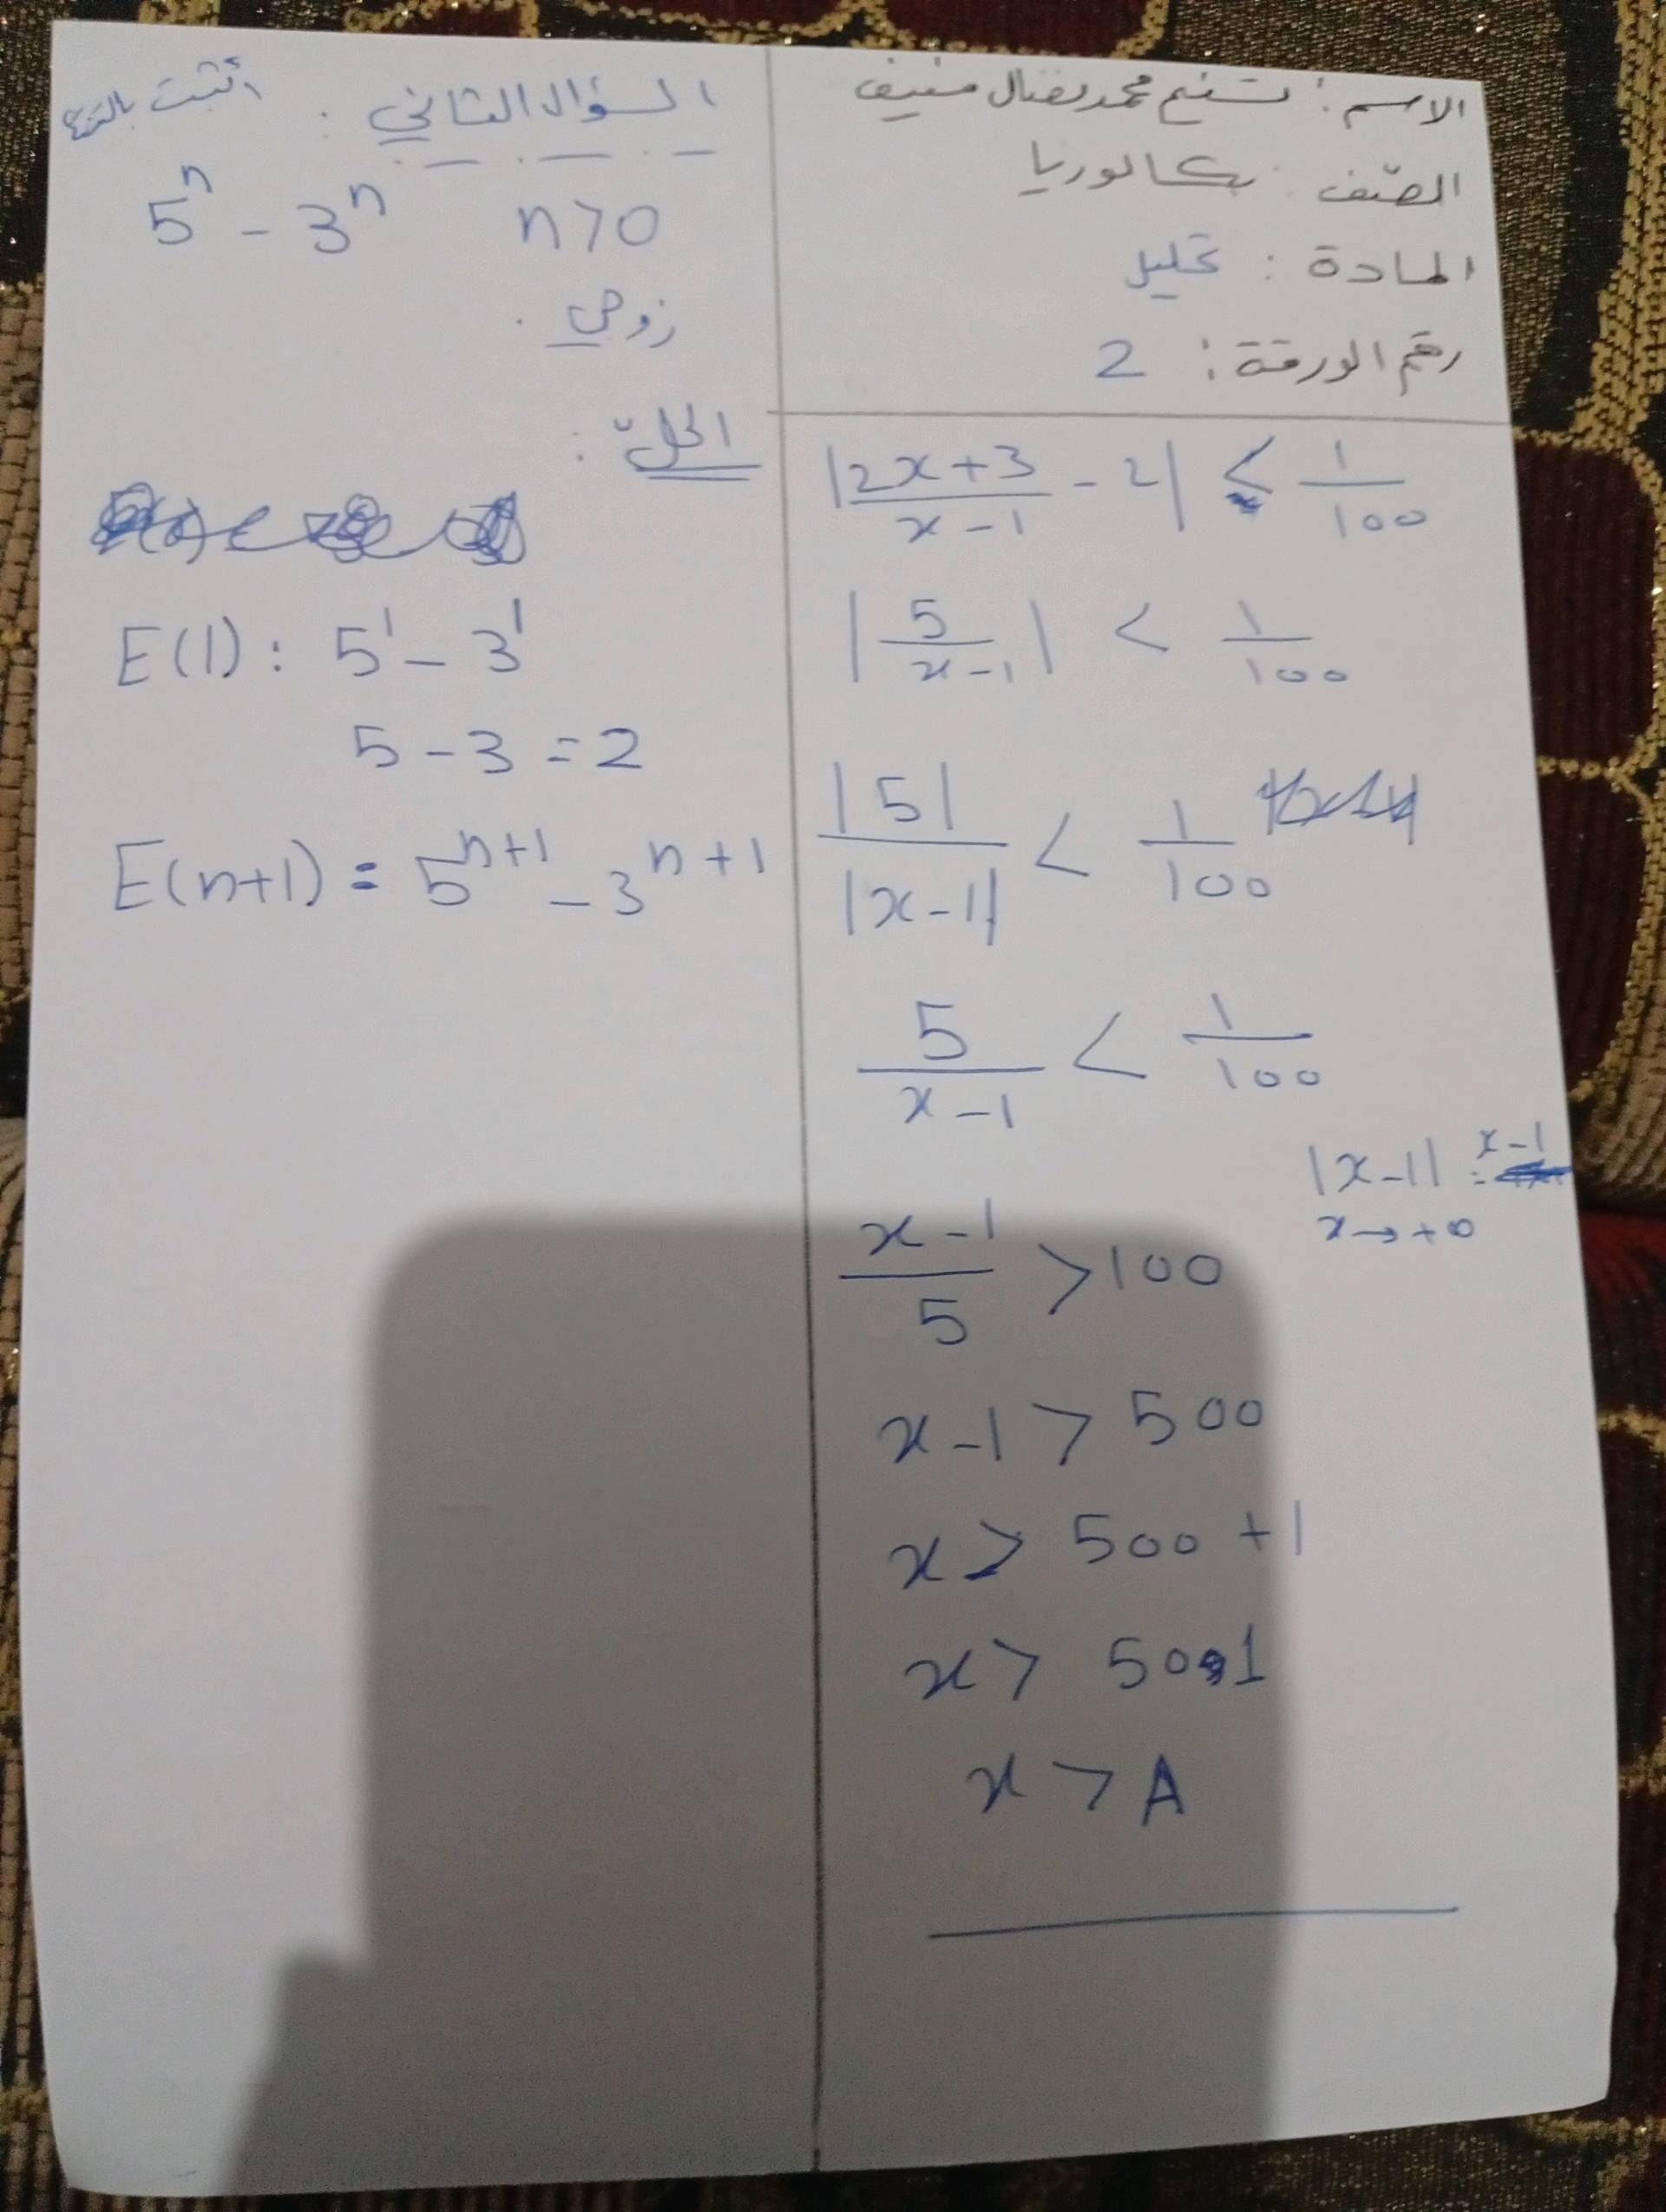 الاسم: تسنيم محمد نضال منيف
الصّف: بكالوريا
المادة: تحليل
رقم الورقة: 2
|2x+3/x-1 - 2| < 1/100
|5/x-1| < 1/100
|5|/|x-1| < 1/100
5/x-1 < 1/100
|x-1| = x-1
x→+∞
x-1/5 > 100
x-1 > 500
x > 500+1
x > 501
x > A
السؤال الثاني: أثبت
5^n - 3^n n>0
زوجي.
الحلّ:
E(1): 5^1 - 3^1
5-3=2
E(n+1): 5^{n+1} - 3^{n+1}